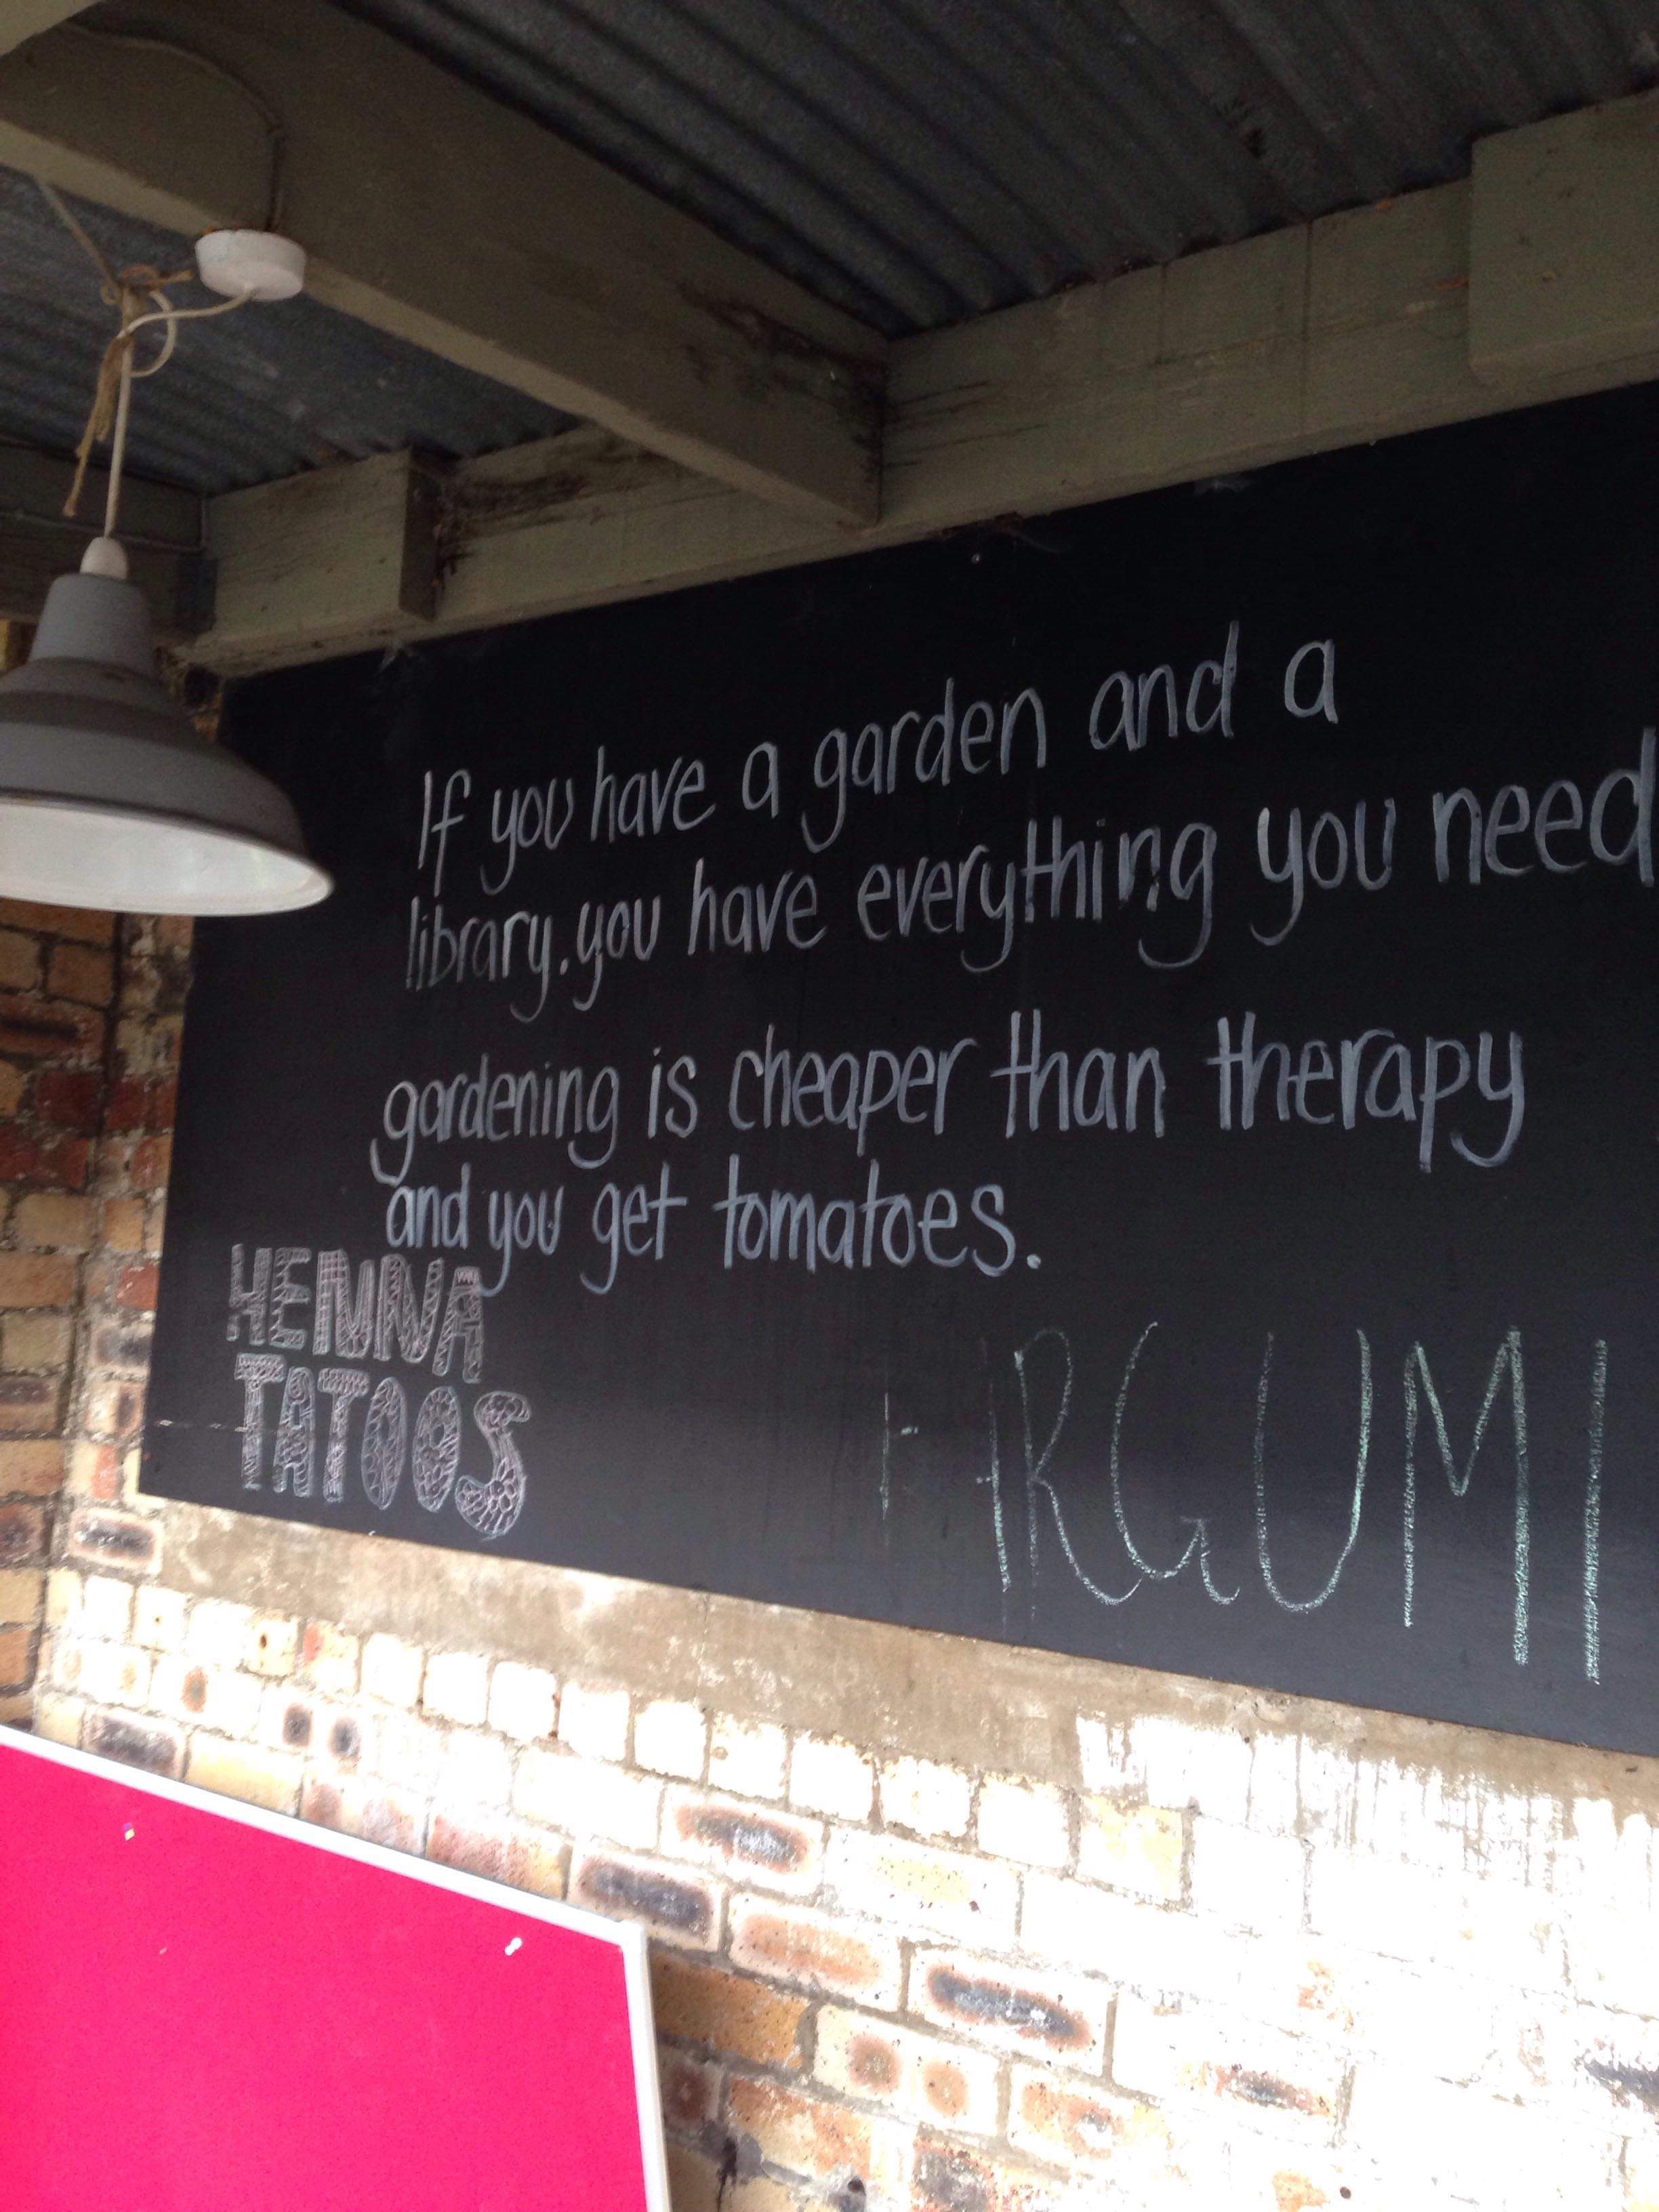 If you have a garden and a
library. you have everything you need
gardening is cheaper than therapy
and you get tomatoes.
HENNA
TATOOS